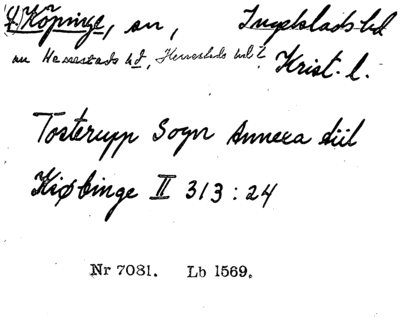 Ö. Köpinge, sn, Ingelstads hd
nu Herrestads hd, Herrestads hd? Krist. l.
Tosterupp Sogn Annexa till
Kiøbinge II 313:24
Nr 7081. Lb 1569.